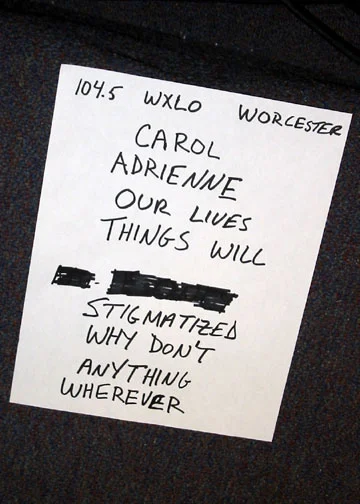 104.5 WXLO WORCESTER
CAROL
ADRIENNE
OUR LIVES
THINGS WILL
STIGMATIZED
WHY DON'T
ANYTHING
WHEREVER